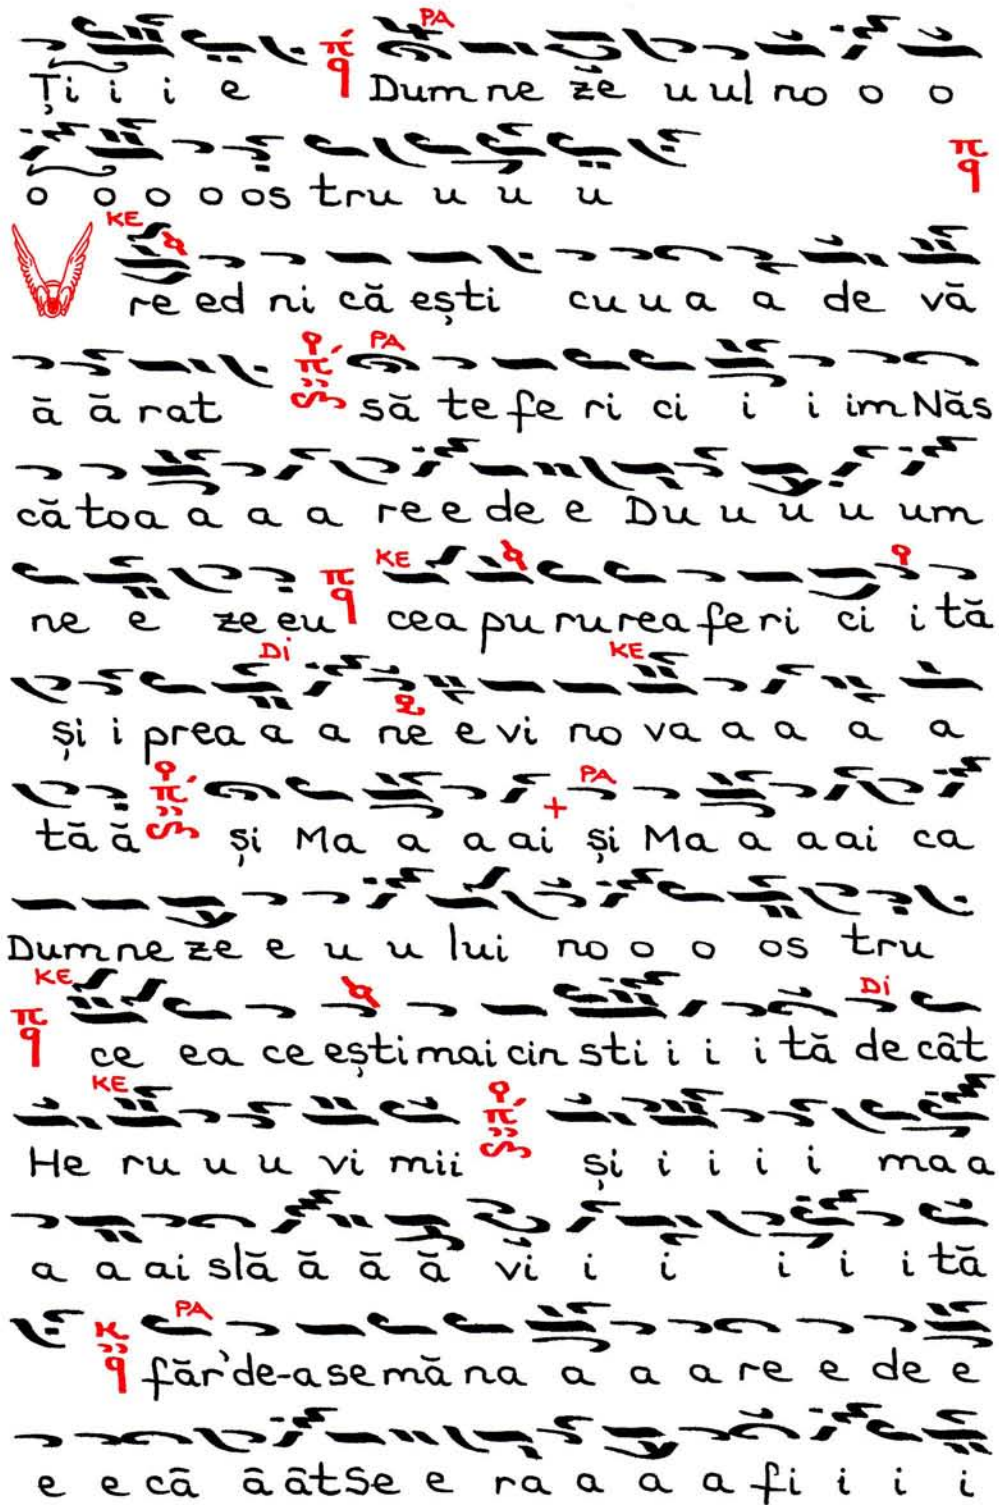 PA
Ți i i e π q Dum ne ze u ul no o o
o o o o os tru u u u π q
KE
V re ed ni că ești cu u a a de vă
PA
ă ă rat să te fe ri ci i i im Năs
că toa a a a re e de e Du u u u um
KE
ne e ze eu π q cea pu ru rea fe ri ci i tă
Di KE
și i prea a a ne e vi no va a a a a
PA
tă ă și Ma a a ai și Ma a a ai ca
Dum ne ze e u u lui no o o os tru
KE Di
π q ce ea ce ești mai cin sti i i i tă de cât
KE
He ru u u vi mii și i i i i ma a
a a ai slă ă ă ă vi i i i i i tă
PA
κ q făr' de-a se mă na a a a re e de e
e e câ â ât Se e ra a a a fi i i i